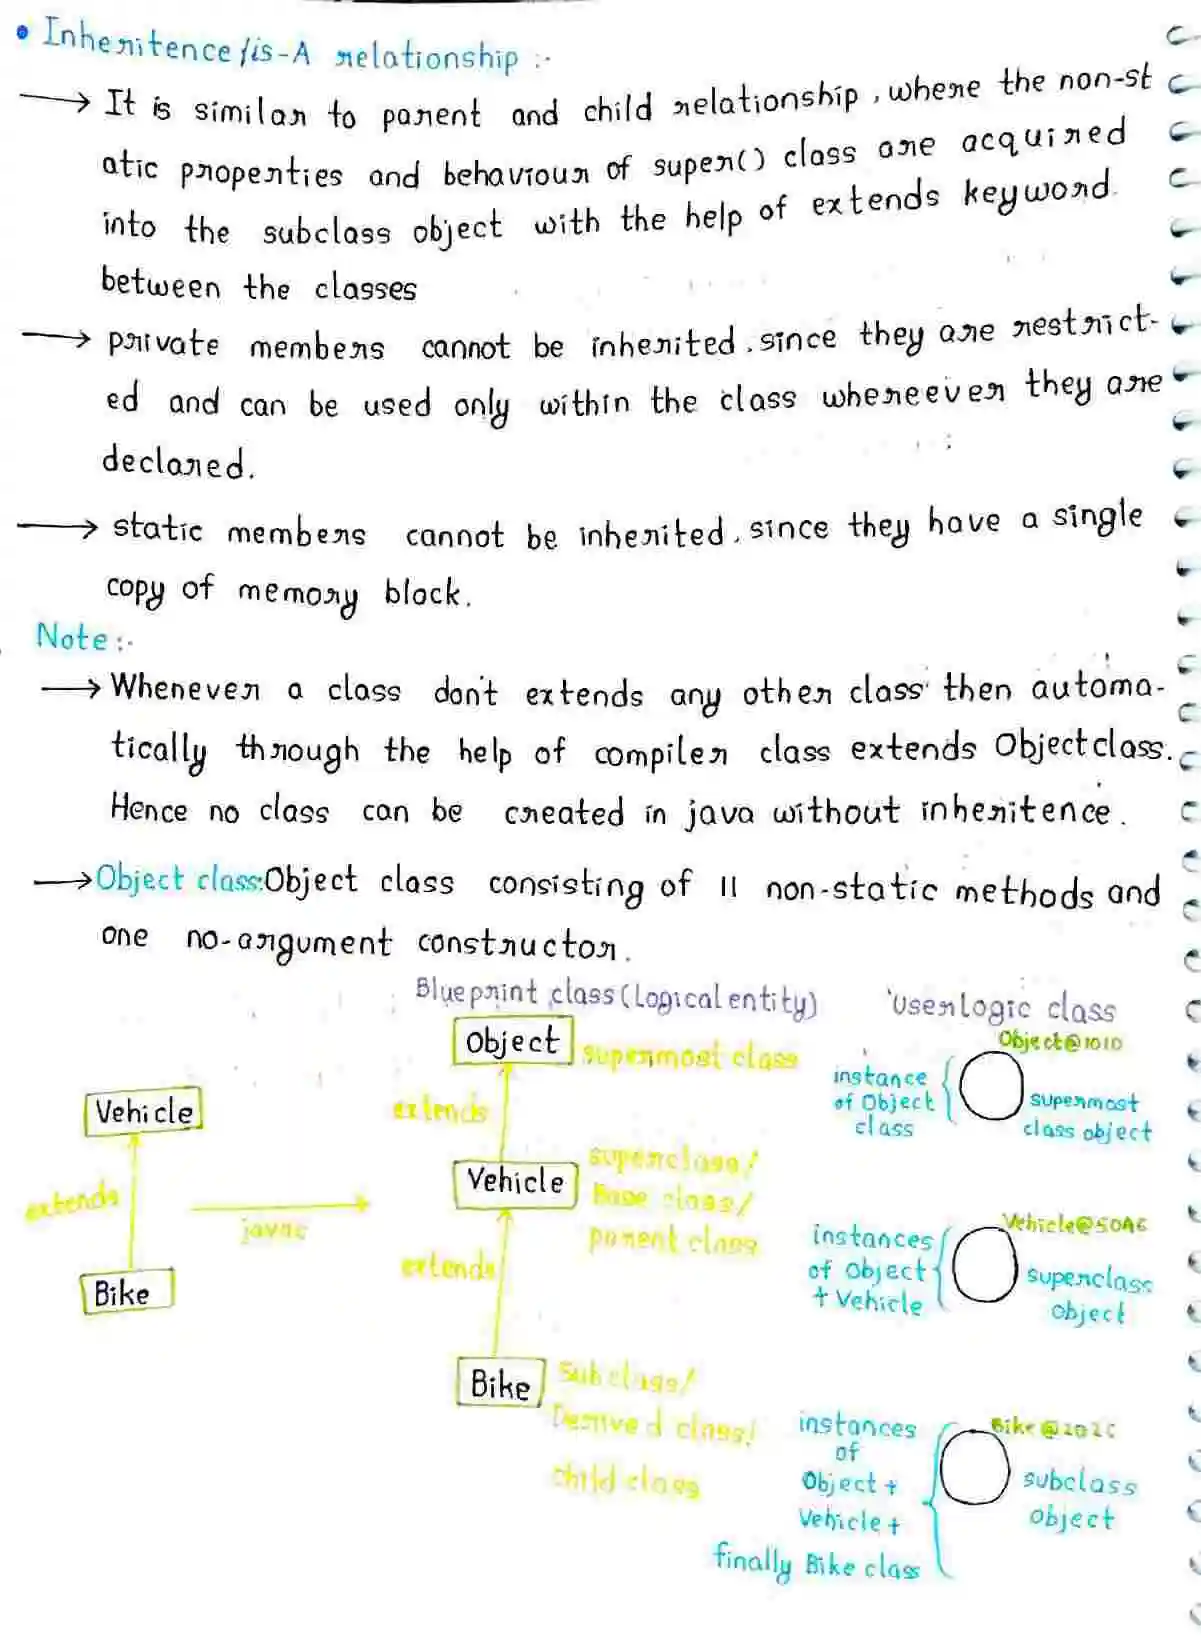 • Inheritence/is-A relationship :-
→ It is similar to parent and child relationship, where the non-st
atic properties and behaviour of super() class are acquired
into the subclass object with the help of extends keyword.
between the classes
→ private members cannot be inherited. since they are restrict-
ed and can be used only within the class whereever they are
declared.
→ static members cannot be inherited. since they have a single
copy of memory block.
Note :-
→ Whenever a class don't extends any other class then automa-
tically through the help of compiler class extends Object class.
Hence no class can be created in java without inheritence.
→ Object class: Object class consisting of 11 non-static methods and
one no-argument constructor.
Blueprint class (Logical entity)
User logic class
Object
supermost class
extends
Object@1010
instance
of Object
class
supermost
class object
Vehicle
extends
Bike
javac
Vehicle
superclass/
Base class/
parent class
extends
Vehicle@50A6
instances
of Object
+ Vehicle
superclass
object
Bike
Subclass/
Derived class/
child class
Bike@202C
instances
of
Object +
Vehicle +
finally Bike class
subclass
object